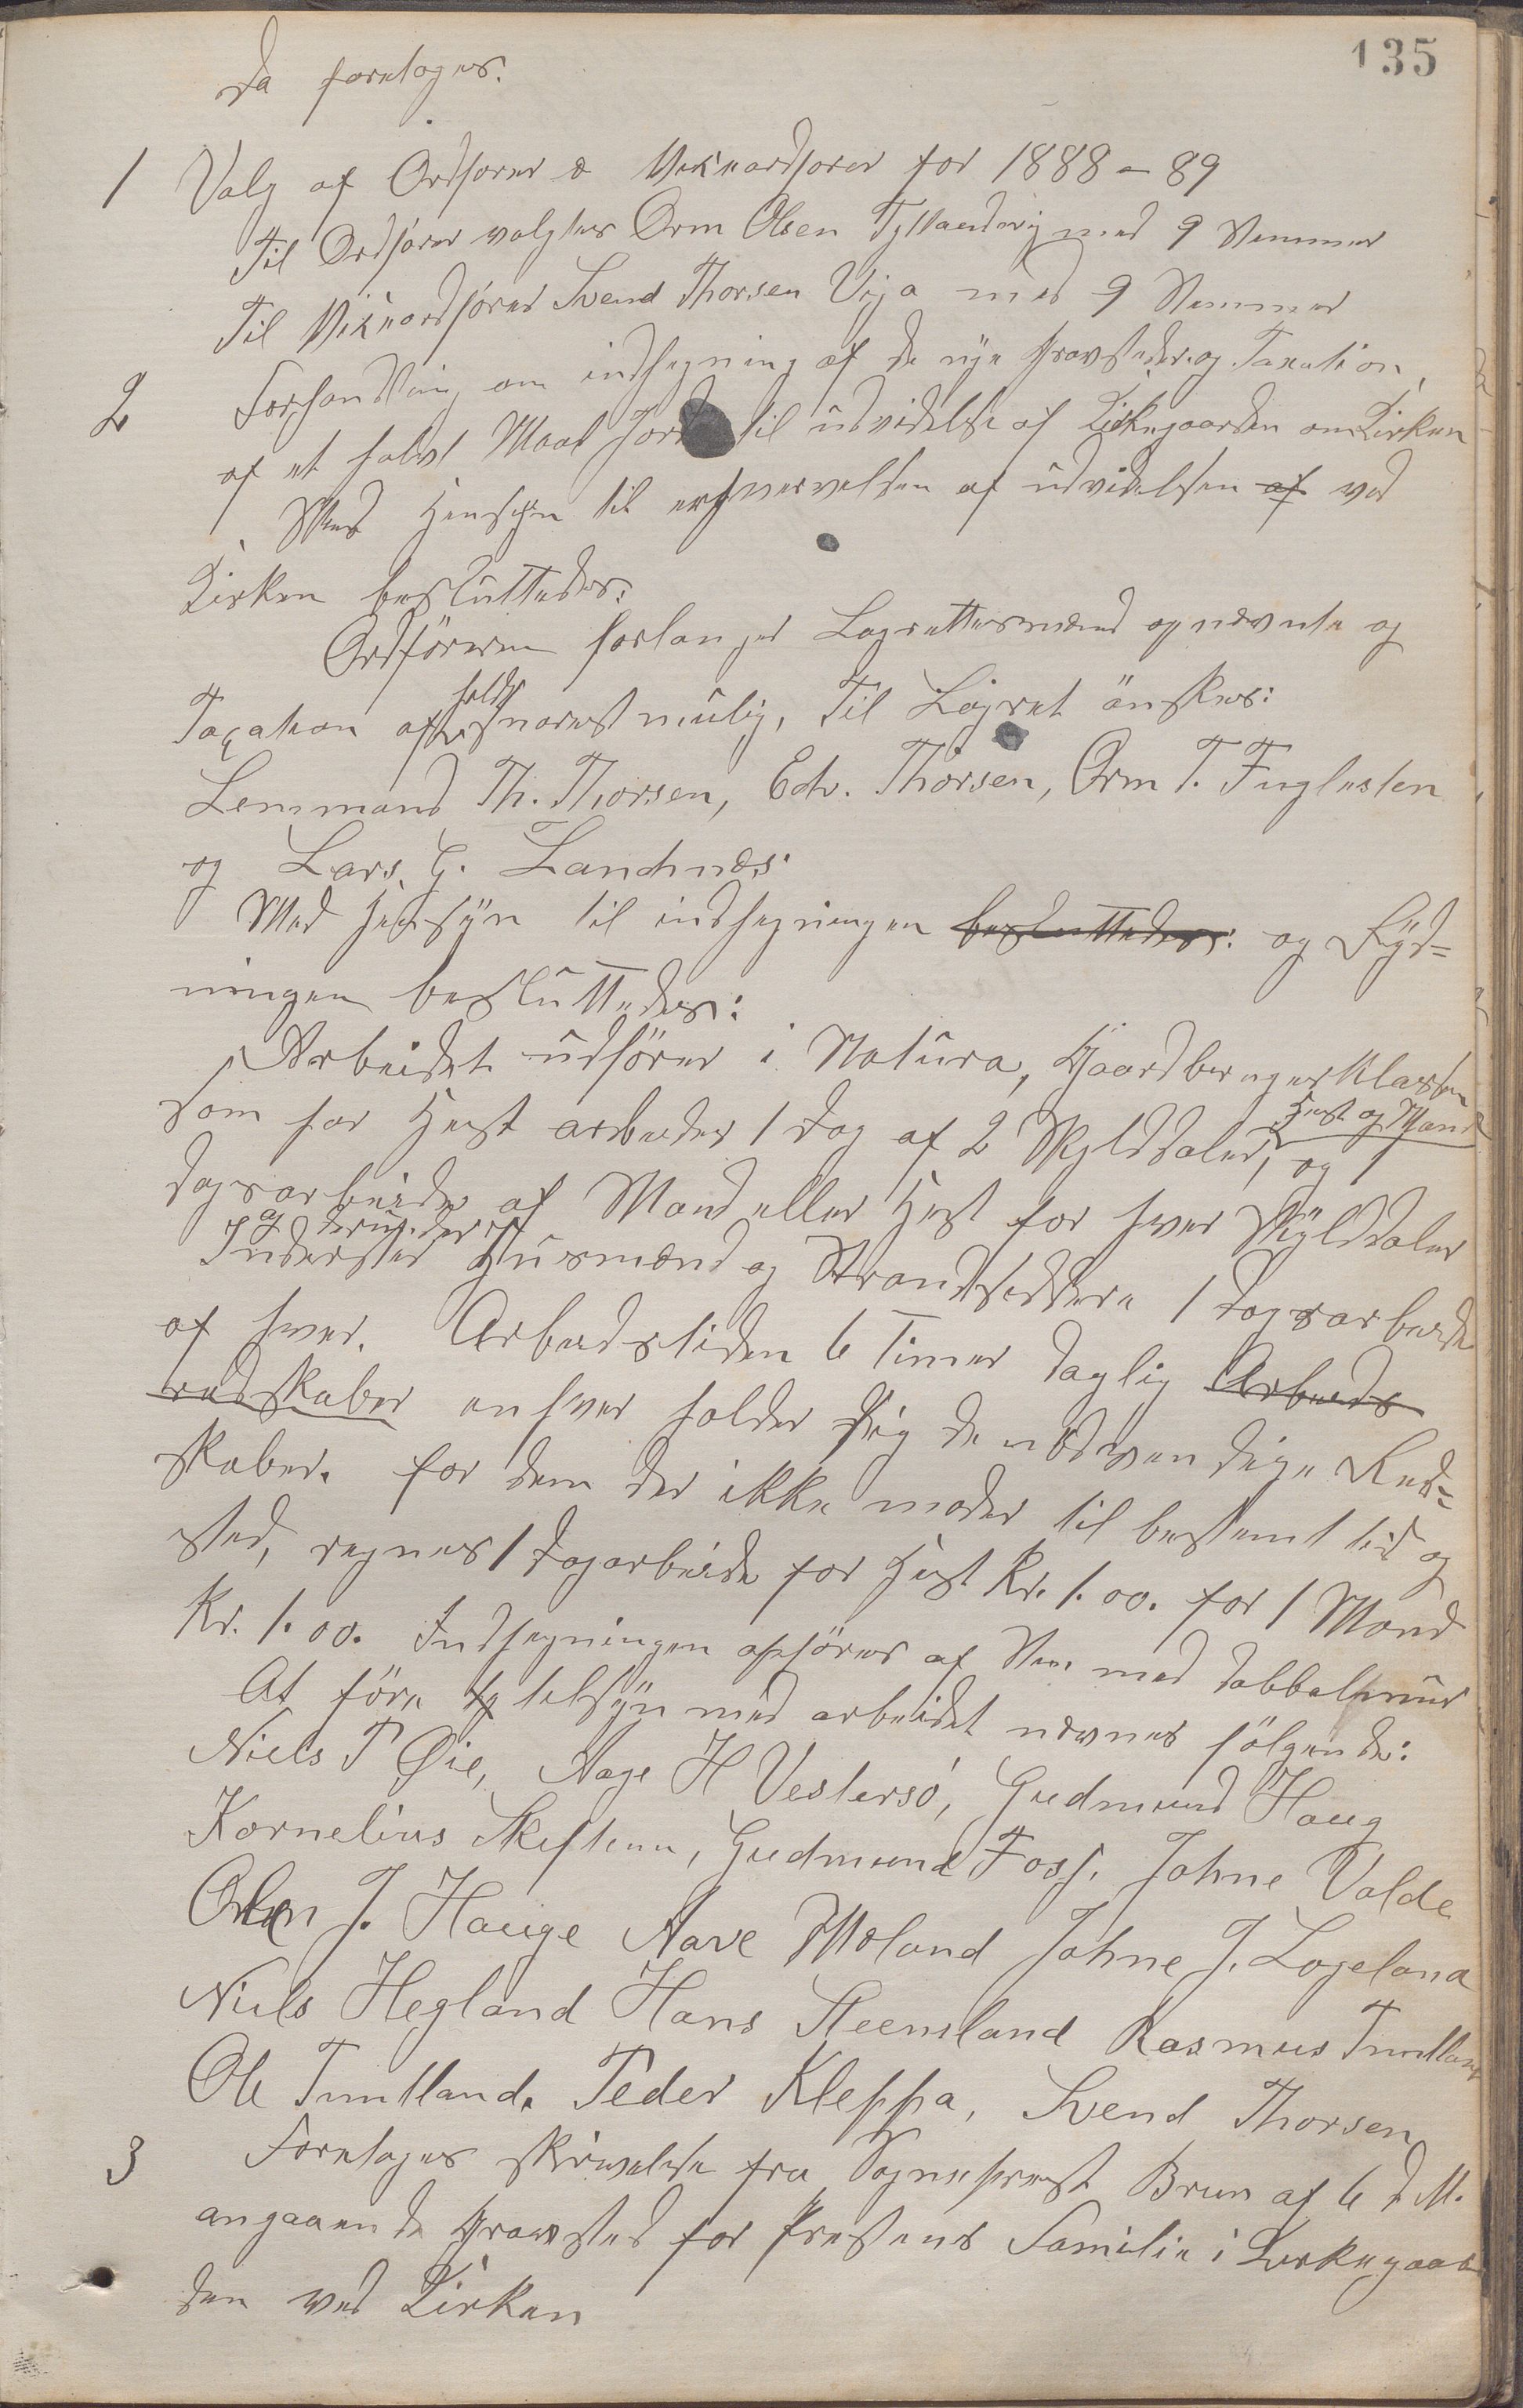 135
da foretoges.
1 Valg af Ordfører & Viseordfører for 1888-89
Til Ordfører valgtes Orm Olsen med 9 Stemmer
Til Viseordfører Svend Thorsen Viga med 9 Stemmer
2 Forhandling om indhegning af de nye Gravsteder og Taxation
af et halvt Maal Jord til udvidelse af Kirkegaarden om Kirken
Med Hensyn til erhvervelsen af udvidelsen af ved
Kirken besluttedes:
Ordføreren forlanger Lagrettesmænd opnævnte og
Taxation afholdt snarest mulig, Til Lagret ønskes:
Lensmand Th. Thorsen, Edv. Thorsen, Orm T. Fuglesten
og Lars G. Landsnæs.
Med Hensyn til indhegningen besluttedes: og Ryd-
ningen besluttedes:
Arbeidet udføres i Natura, Gaardbruger Klassen
som har Hest arbeider 1 dag af 2 Skylddaler, Hest og Mand og 1
dagsarbeide af Mand eller Hest for hver Skylddaler
og derunder Inderster Husmænd og Strandsiddere 1 dagsarbeide
af hver. Arbeidstiden 6 Timer daglig Arbeids
redskaber enhver holder sig de nødvendige Red-
skaber. for dem der ikke møder til bestemt tid og
sted, regnes 1 dagarbeide for Hest Kr. 1.00. for 1 Mand
Kr. 1.00. Indhegningen opføres af Sten med dobbelmur
At føre tilsyn med arbeidet nævnes følgende:
Niels T Øie, Aage H Vestersø, Gudmund Haug
Kornelius Skiftun, Gudmund Foss. Johne Valde
Orm J. Hauge Aave Moland Johne J. Logeland
Niels Hegland Hans Steensland Rasmus Tuntland
Ole Tuntland. Peder Kleppa, Svend Thorsen
3 Foretoges skrivelse fra Sogneprest Brun af 6 d.M.
angaaende Gravsted for Prestens Familie i Kirkegaar
den ved Kirken